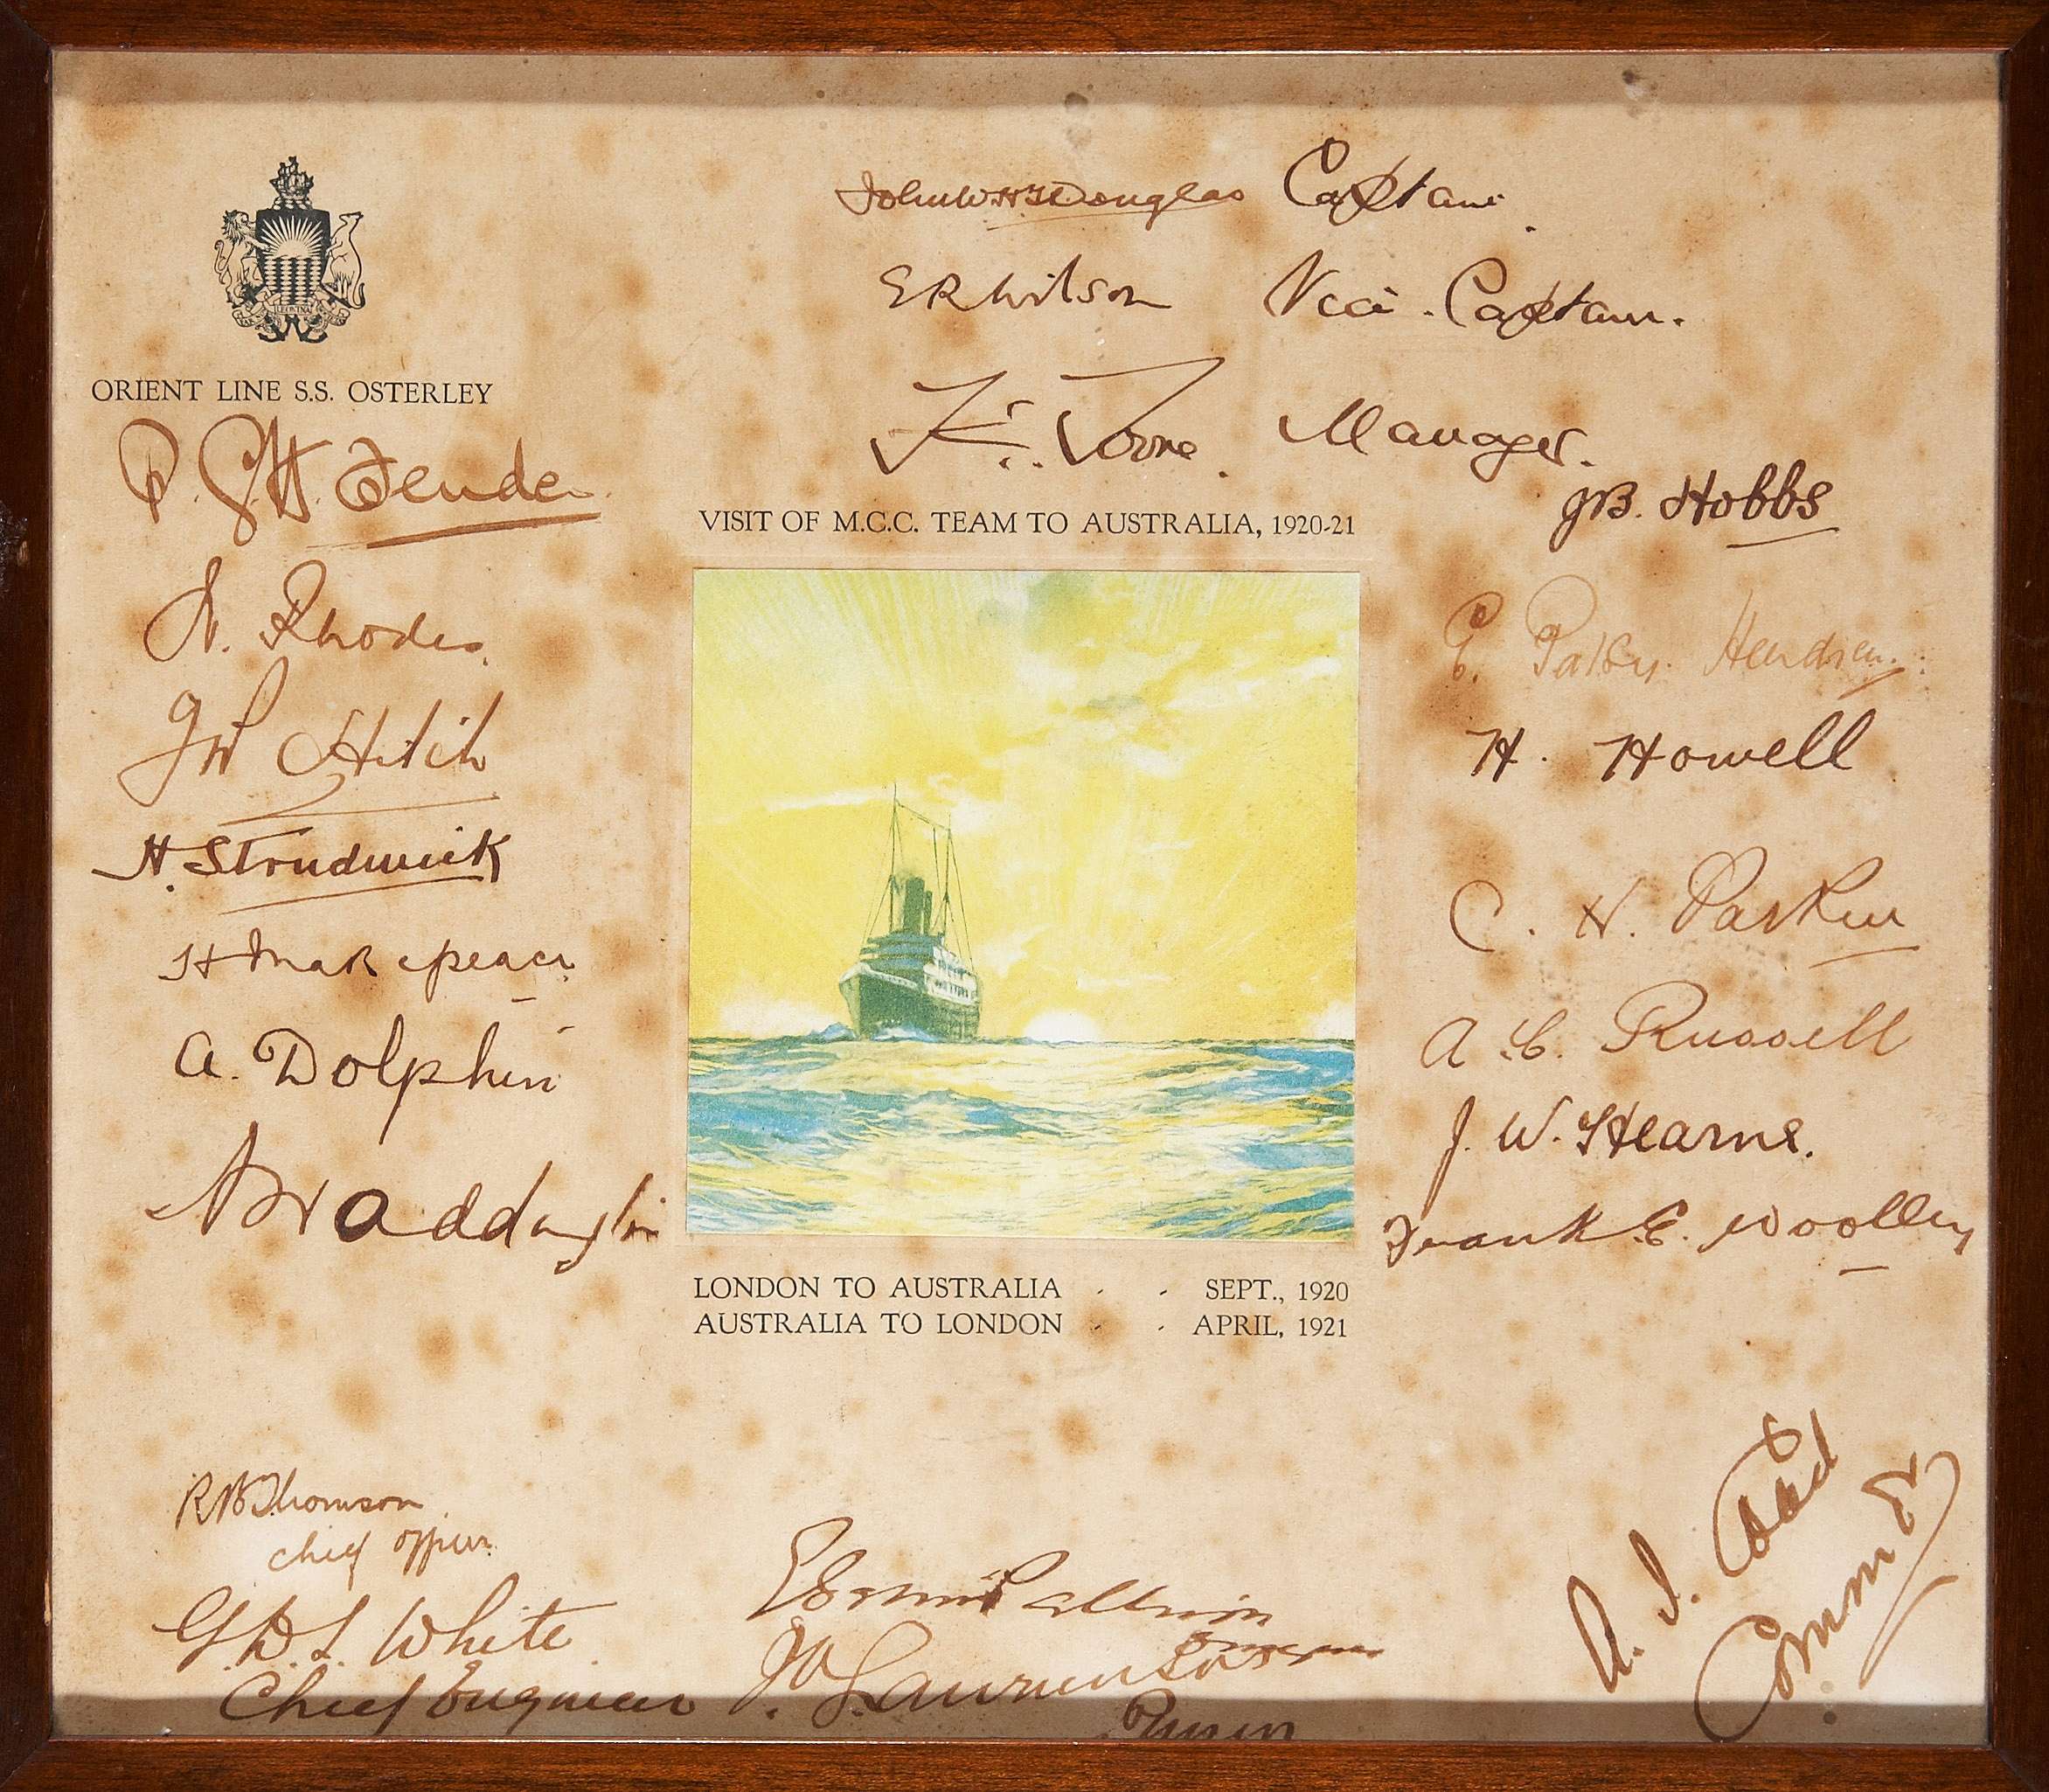 John W H T Douglas Captain.
E R Wilson Vice-Captain.
F. C. Toone. Manager.
ORIENT LINE S.S. OSTERLEY
P. G. H. Fender
W. Rhodes.
J W Hitch
H. Strudwick
H Makepeace
A. Dolphin
A Waddington
VISIT OF M.C.C. TEAM TO AUSTRALIA, 1920-21
J B. Hobbs
E. Patsy. Hendren.
H. Howell
C. H. Parkin
A. C. Russell
J. W. Hearne.
Frank E. Woolley
LONDON TO AUSTRALIA - - SEPT., 1920
AUSTRALIA TO LONDON - - APRIL, 1921
Thomson
Chief Officer
White
Chief Engineer
Lawrence
A. I.
Commdr